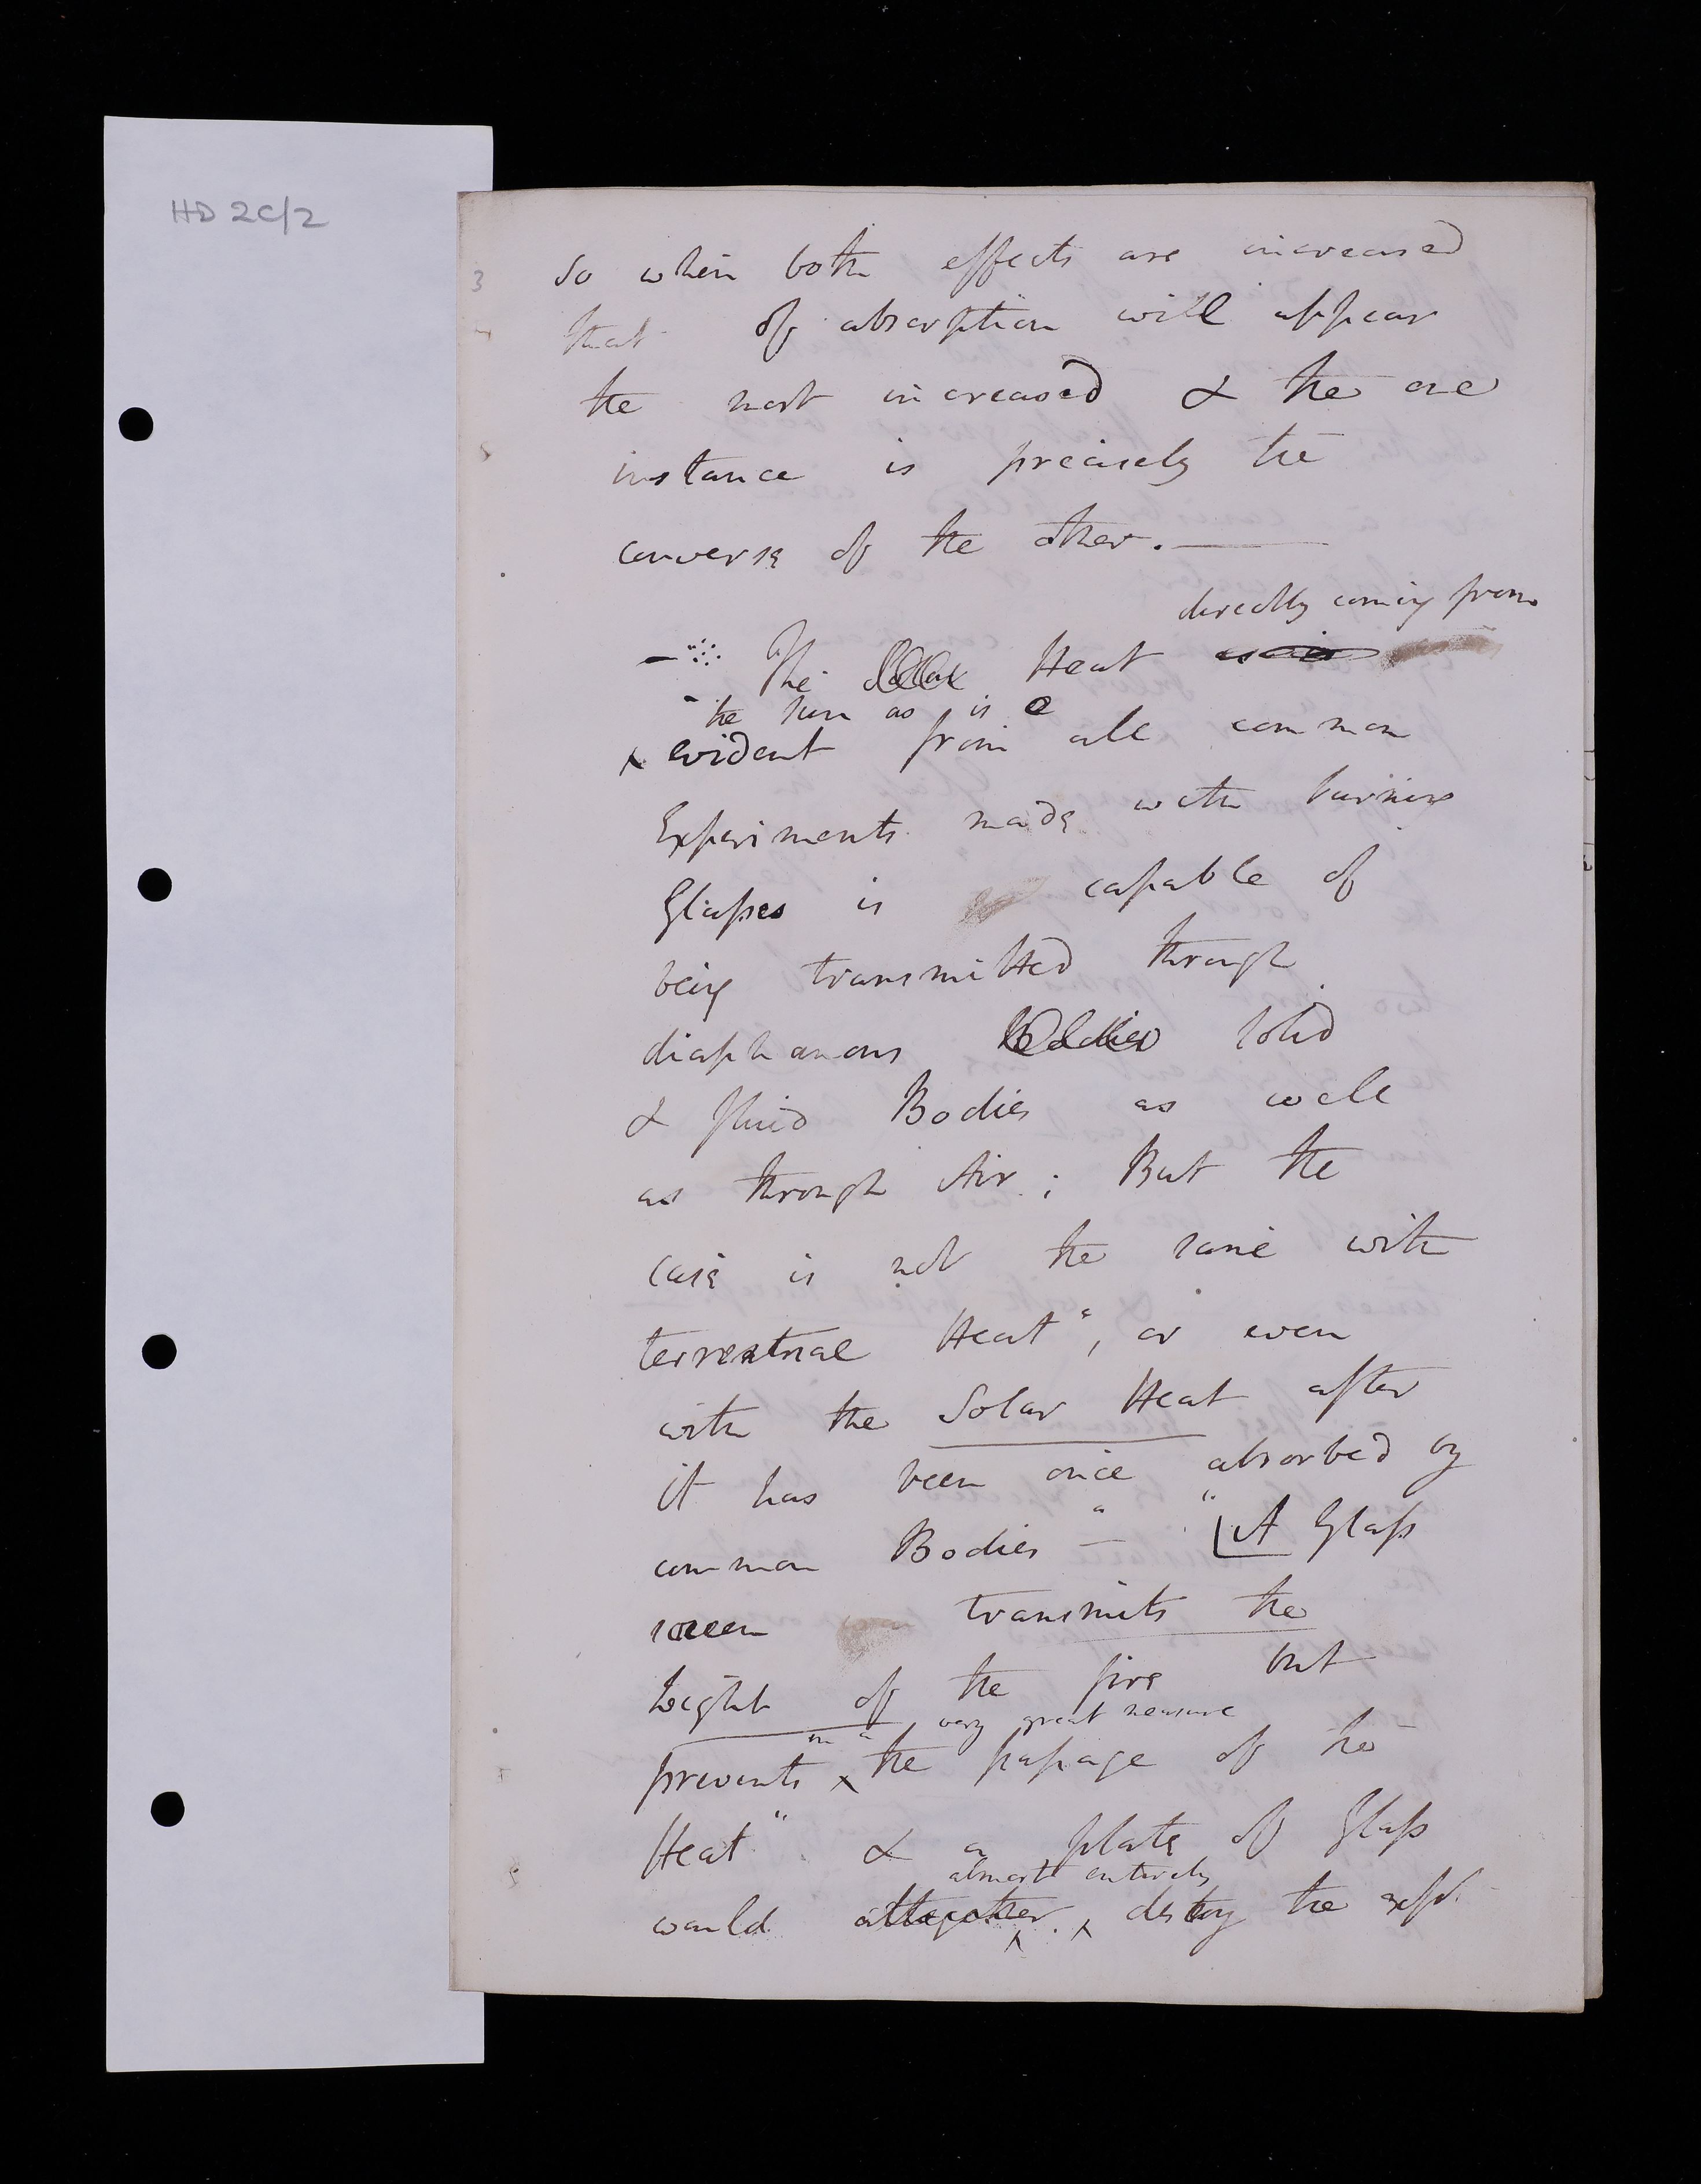 HD 2C/2
3
so when both effects are increased
that of absorption will appear
the most increased & the one
instance is precisely the
converse of the other.
directly coming from
The Heat
the sun as is e
evident from all common
Experiments made with burning
Glasses is capable of
being transmitted through
diaphanous Boddies solid
& fluid Bodies as well
as through Air; But the
case is not the same with
terrestrial Heat", or even
with the Solar Heat after
it has been once absorbed by
common Bodies" — "A Glass
screen transmits the
Light of the fire but
in a very great measure
prevents the passage of the
Heat" & a plate of Glass
almost entirely
would altogether destroy the